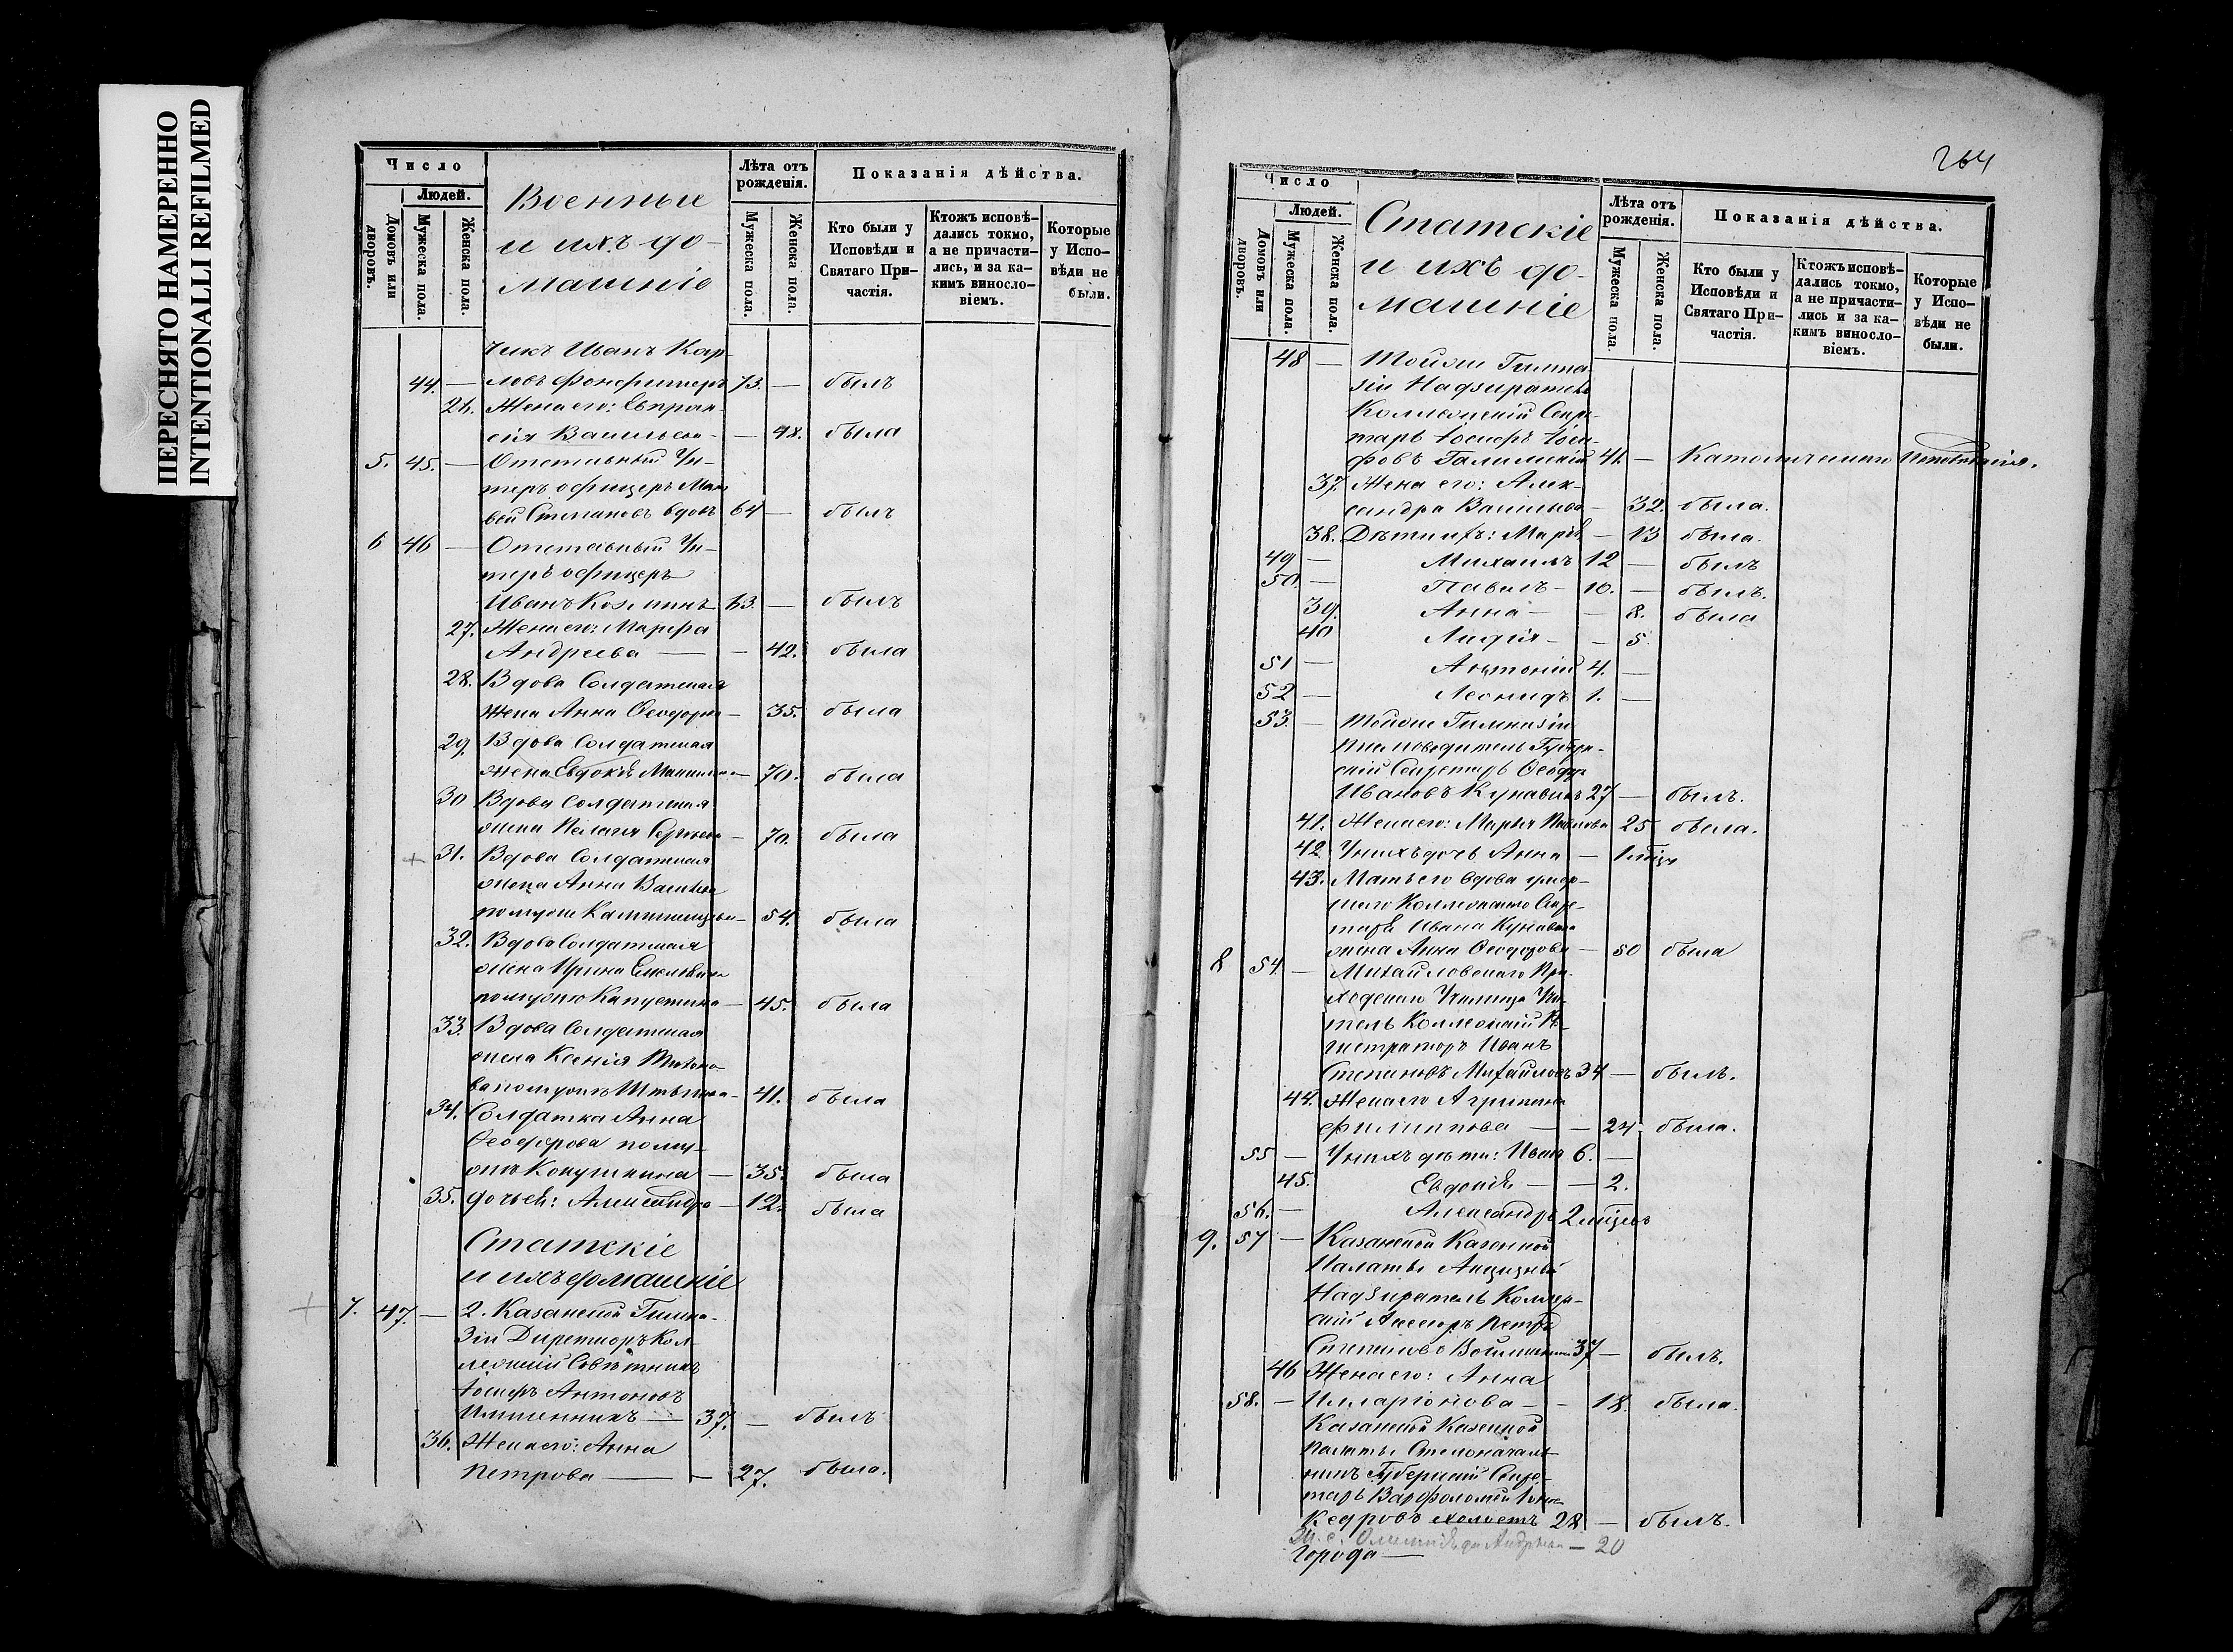 ПЕРЕСНЯТО НАМЕРЕННО
INTENTIONALLI REFILMED
Число
Людей.
Домовъ или дворовъ.
Мужеска пола.
Женска пола.
Военные
и ихъ до-
машніе
Лѣта отъ рожденія.
Мужеска пола.
Женска пола.
Показанія дѣйства.
Кто были у Исповѣди и Святаго Причастія.
Ктожъ исповѣдались токмо, а не причастились, и за какимъ винословіемъ.
Которые у Исповѣди не были.
чикъ Иванъ Кар-
44. — ловъ 73. — былъ
26. Жена его: Евпрак-
сія Васильева — 48. была
5. 45. — Отставный Ун-
теръ офицеръ Мат
вей Степановъ вдовъ 64 — былъ
6 46 — Отставный Ун-
теръ офицеръ
Иванъ Козминъ 63. — былъ
27. Жена его: Марфа
Андреева — — 42. была
28. Вдова Солдатская
жена Анна Ѳеодорова — 35. была
29. Вдова Солдатская
жена Евдокія — 70. была
30 Вдова Солдатская
жена Пелагія Сергеева — 70. была
+ 31. Вдова Солдатская
жена Анна Васильева
помуже — 54. была
32. Вдова Солдатская
жена Ирина Емельянова
помужю Капустина — 45. была
33. Вдова Солдатская
жена Ксенія
ва помужю — 41. была
34. Солдатка Анна
Ѳеодорова пому-
жъ — 35. была
35. дочь ея: Александра — 12. была
Статскіе
и ихъ домашніе
+ 7. 47. — 2. Казанской Гимна-
зіи Директоръ Кол-
лежскій Совѣтникъ
Іосифъ Антоновъ
— 37. — былъ
36. Жена его: Анна
Петрова — — 27. была.
264
Число
Людей.
Домовъ или дворовъ.
Мужеска пола.
Женска пола.
Статскіе
и ихъ до-
машніе
Лѣта отъ рожденія.
Мужеска пола.
Женска пола.
Показанія дѣйства.
Кто были у Исповѣди и Святаго Причастія.
Ктожъ исповѣдались токмо, а не причастились и за какимъ винословіемъ.
Которые у Исповѣди не были.
48 — Тойже Гимна
зіи Надзиратель
Коллежскій Секре-
тарь Іосифъ Іоси-
фовъ 41. — Католическаго Исповѣданія.
37. Жена его: Алек-
сандра Васильева — 32. была.
38. Дѣти ихъ: Марія — 13 была.
49 — Михаилъ 12 — былъ
50. — Павелъ — 10. — былъ.
39. Анна — — 8. была
40 Лидія — — 5
51 — Антоній 4. —
52 — Леонидъ 1. —
53. — Тойже Гимназіи
Письмоводитель Губерн-
скій Секретарь Ѳеодоръ
Ивановъ 27 — былъ.
41. Жена его: Марья Павлова 25 была.
42 У нихъ дочь Анна — 1 мѣся
43. Мать его вдова умер-
шаго Коллежскаго Секре-
таря Ивана
жена Анна Ѳеодорова — 50 была
8 54. — Михайловскаго При-
ходскаго Училища Учи-
тель Коллежскій Ре-
гистраторъ Иванъ
Степановъ Михайловъ 34 — былъ.
44. Жена его Агрипина
Филиппова — — 24. была.
55 — У нихъ дѣти: Иванъ 6. —
45. Евдокія — — 2.
56. — Александръ 2 мѣсеъ
9. 57 — Казанской Казенной
Палаты Акцизный
Надзиратель Коллеж-
скій Ассесоръ Петръ
Степановъ 37 — былъ.
46 Жена его: Анна
58. — Илларіонова — — 18. была.
Казанской Казенной
Палаты Столоначаль-
никъ Губернскій Секре-
тарь Варфоломей
Кедровъ холостъ 28 — былъ.
Андреева — 20
Города —